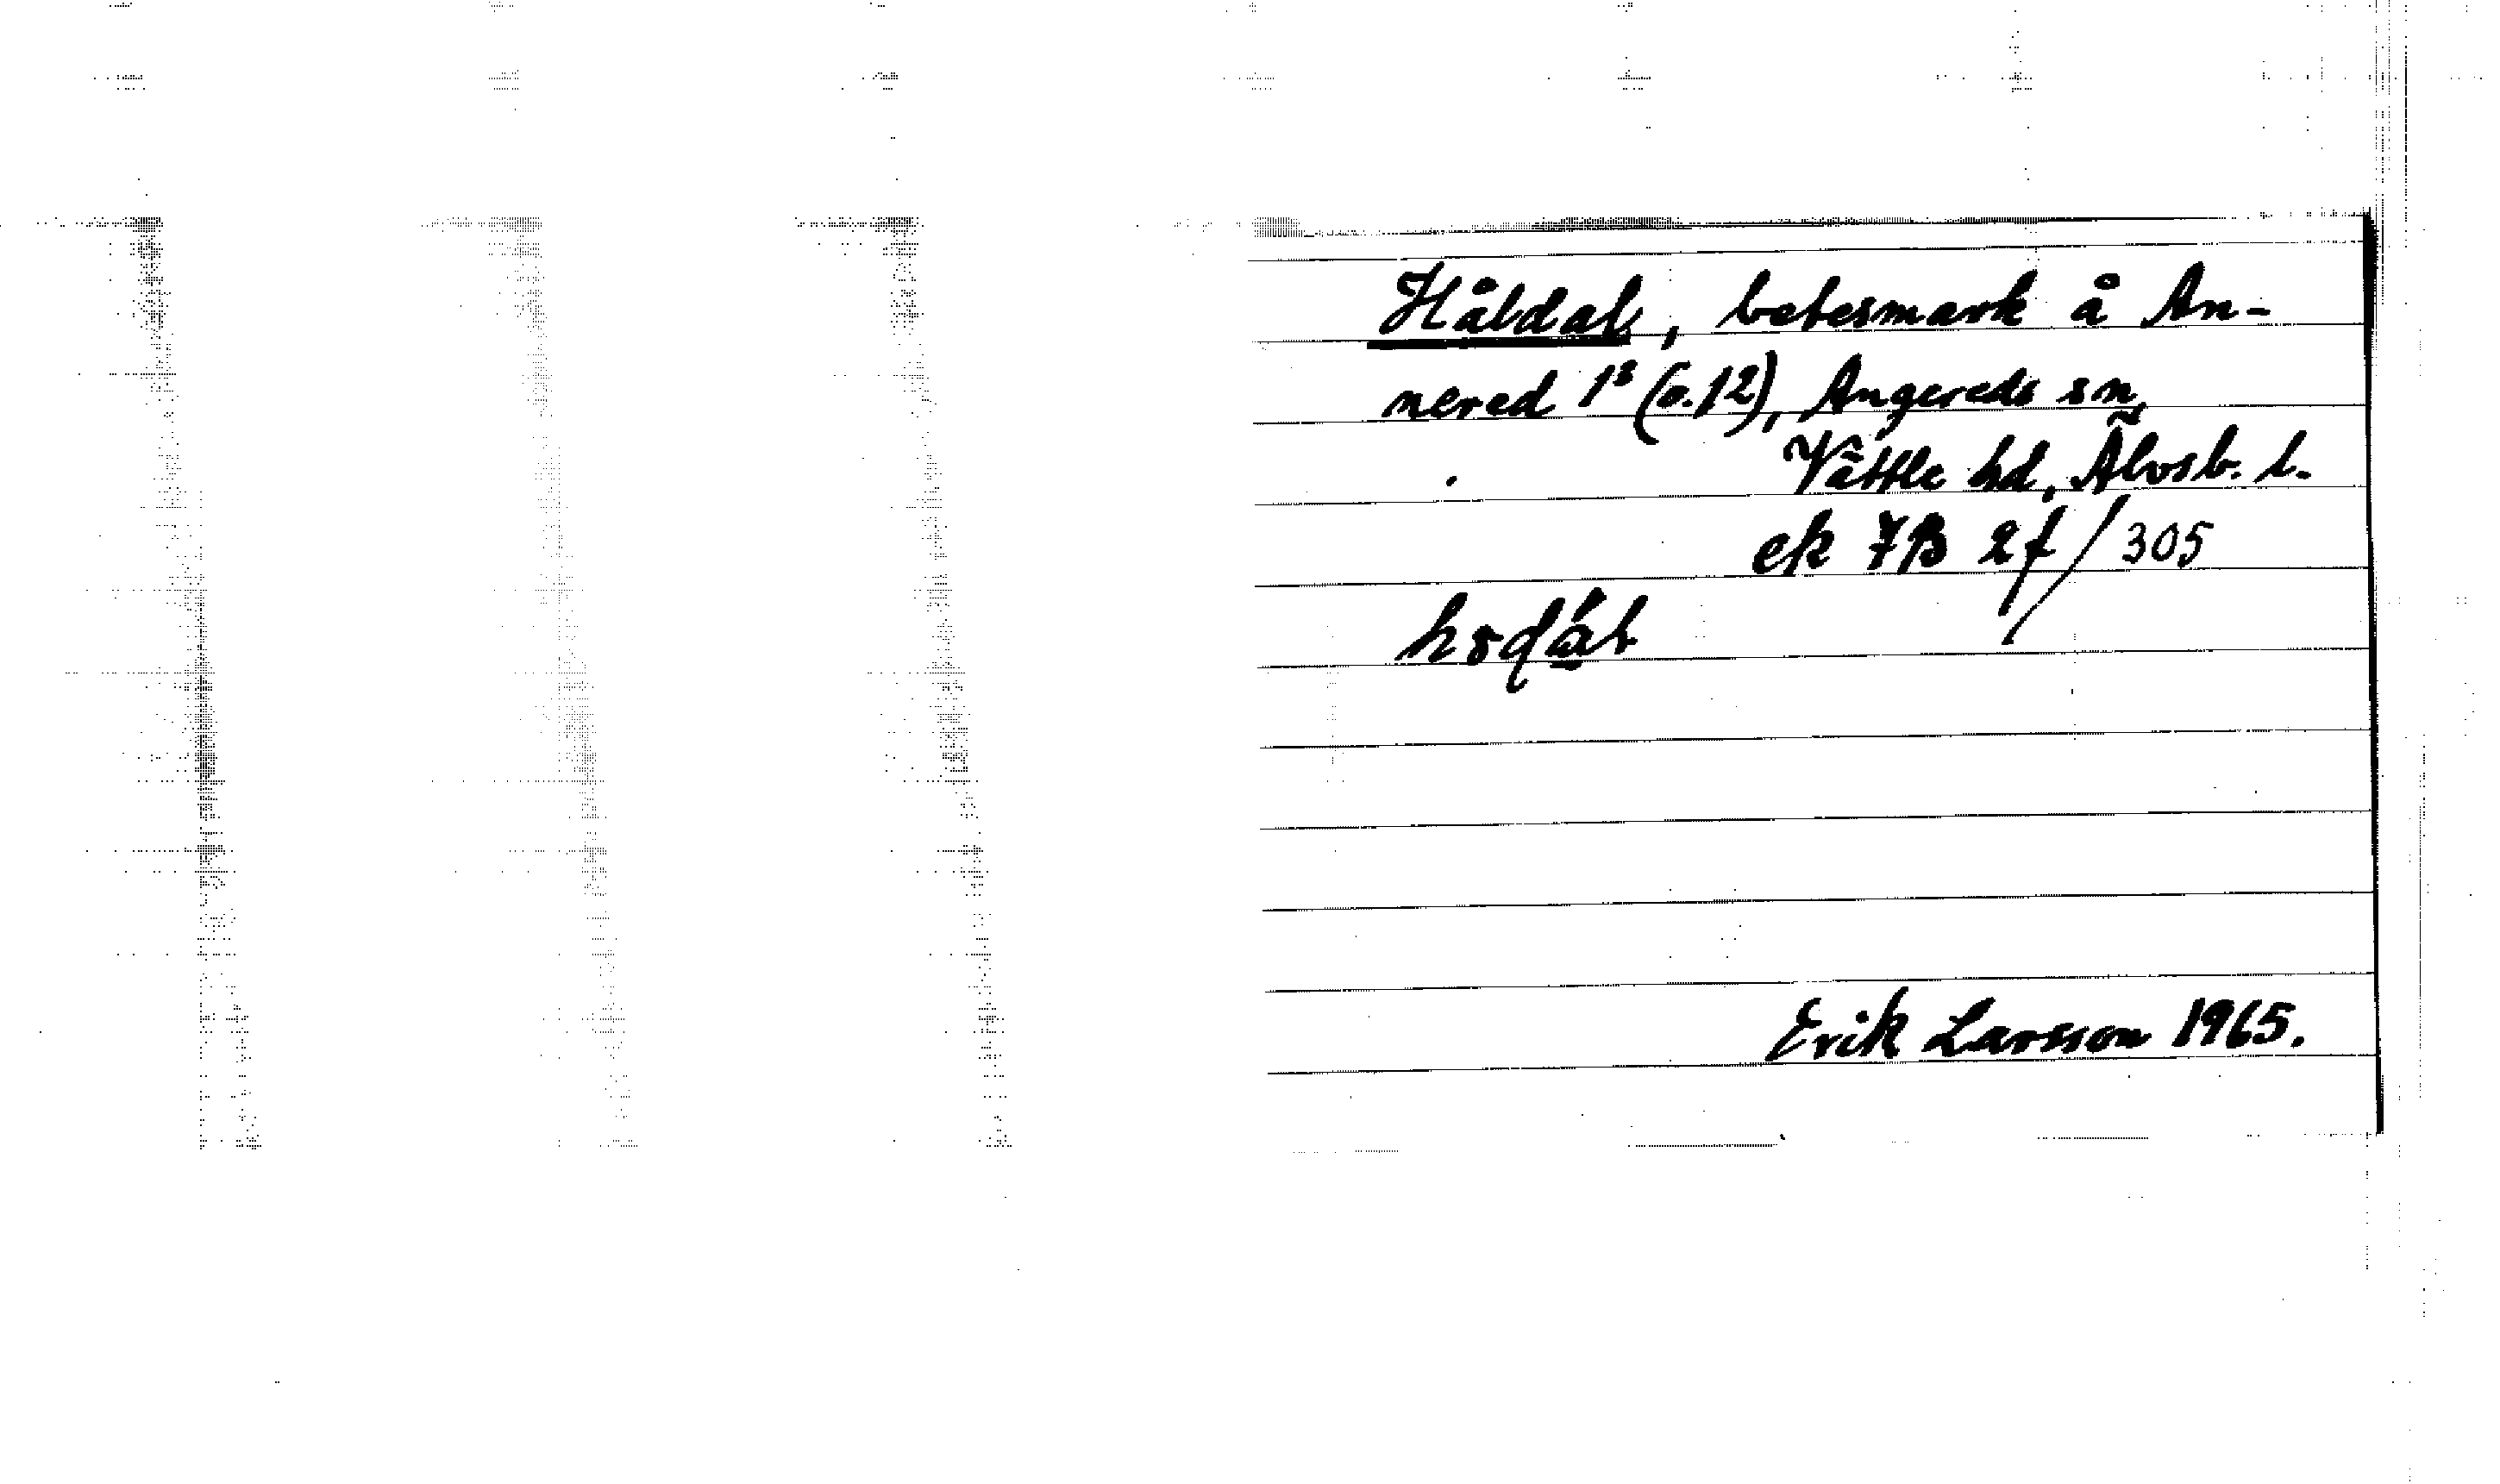 Håldal, betesmark å An-
nered 1³ (o.12), Angereds sn,
Vättle hd, Älvsb. l.
ek 7B 2f/305
Erik Larsson 1965.